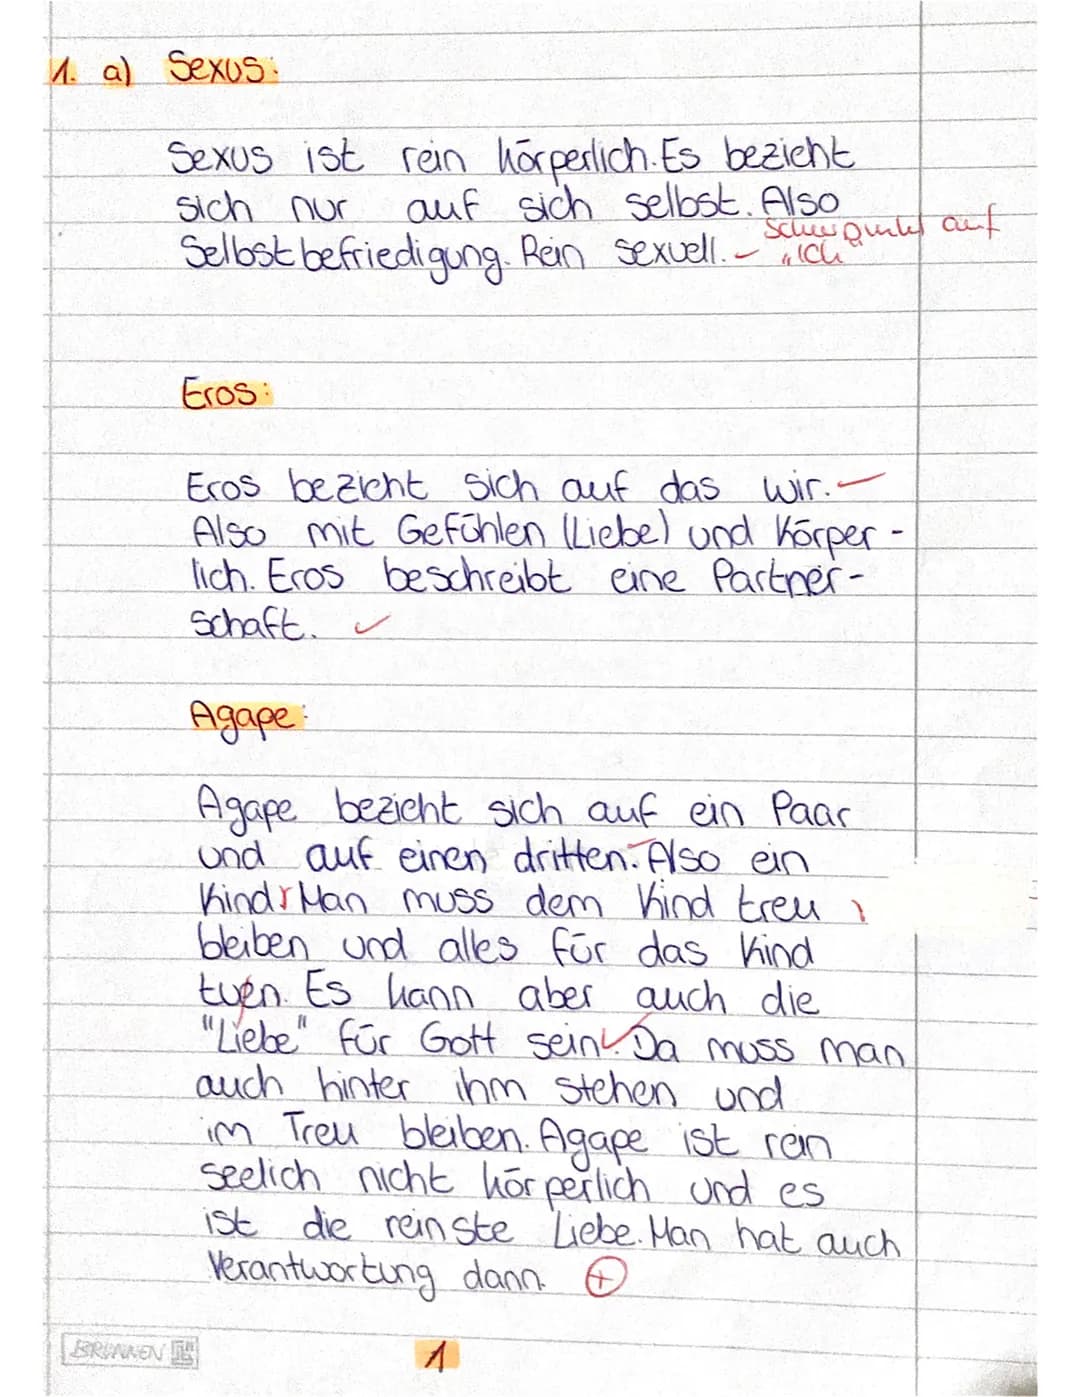 1. a) Sexus:
Sexus ist rein körperlich. Es bezieht
sich nur auf sich selbst. Also
Schwerpunkt auf
Selbstbefriedigung. Rein sexuell. "ich"
Eros:
Eros bezieht sich auf das wir.
Also mit Gefühlen (Liebe) und Körper-
lich. Eros beschreibt eine Partner-
schaft.
Agape:
Agape bezieht sich auf ein Paar
und auf einen dritten. Also ein
Kind. Man muss dem Kind treu
bleiben und alles für das Kind
tuen. Es kann aber auch die
"Liebe" für Gott sein. Da muss man
auch hinter ihm stehen und
im Treu bleiben. Agape ist rein
seelich nicht körperlich und es
ist die reinste Liebe. Man hat auch
Verantwortung dann. +
BRUNNEN
1